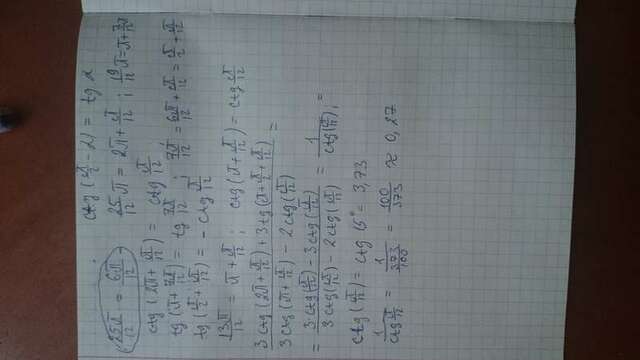 ctg (π/2 - α) = tg α
25π/12 = 6π/12 25/12 π = 2π + π/12 ; 19/12 π = π + 7/12 π
ctg (2π + π/12) = ctg π/12
tg (π + 7π/12) = tg 7π/12 ; 7π/12 = 6π/12 + π/12 = π/2 + π/12
tg (π/2 + π/12) = - ctg π/12
13π/12 = π + π/12 ; ctg (π + π/12) = ctg π/12
(3 ctg (2π + π/12) + 3 tg (π + π/2 + π/12)) / (3 ctg (π + π/12) - 2 ctg (π/12)) =
= (3 ctg (π/12) - 3 ctg (π/12)) / (3 ctg (π/12) - 2 ctg (π/12)) = 1 / ctg (π/12) =
ctg (π/12) = ctg 15° = 3,73
1 / ctg π/12 = 1 / (373/100) = 100/373 ≈ 0,27